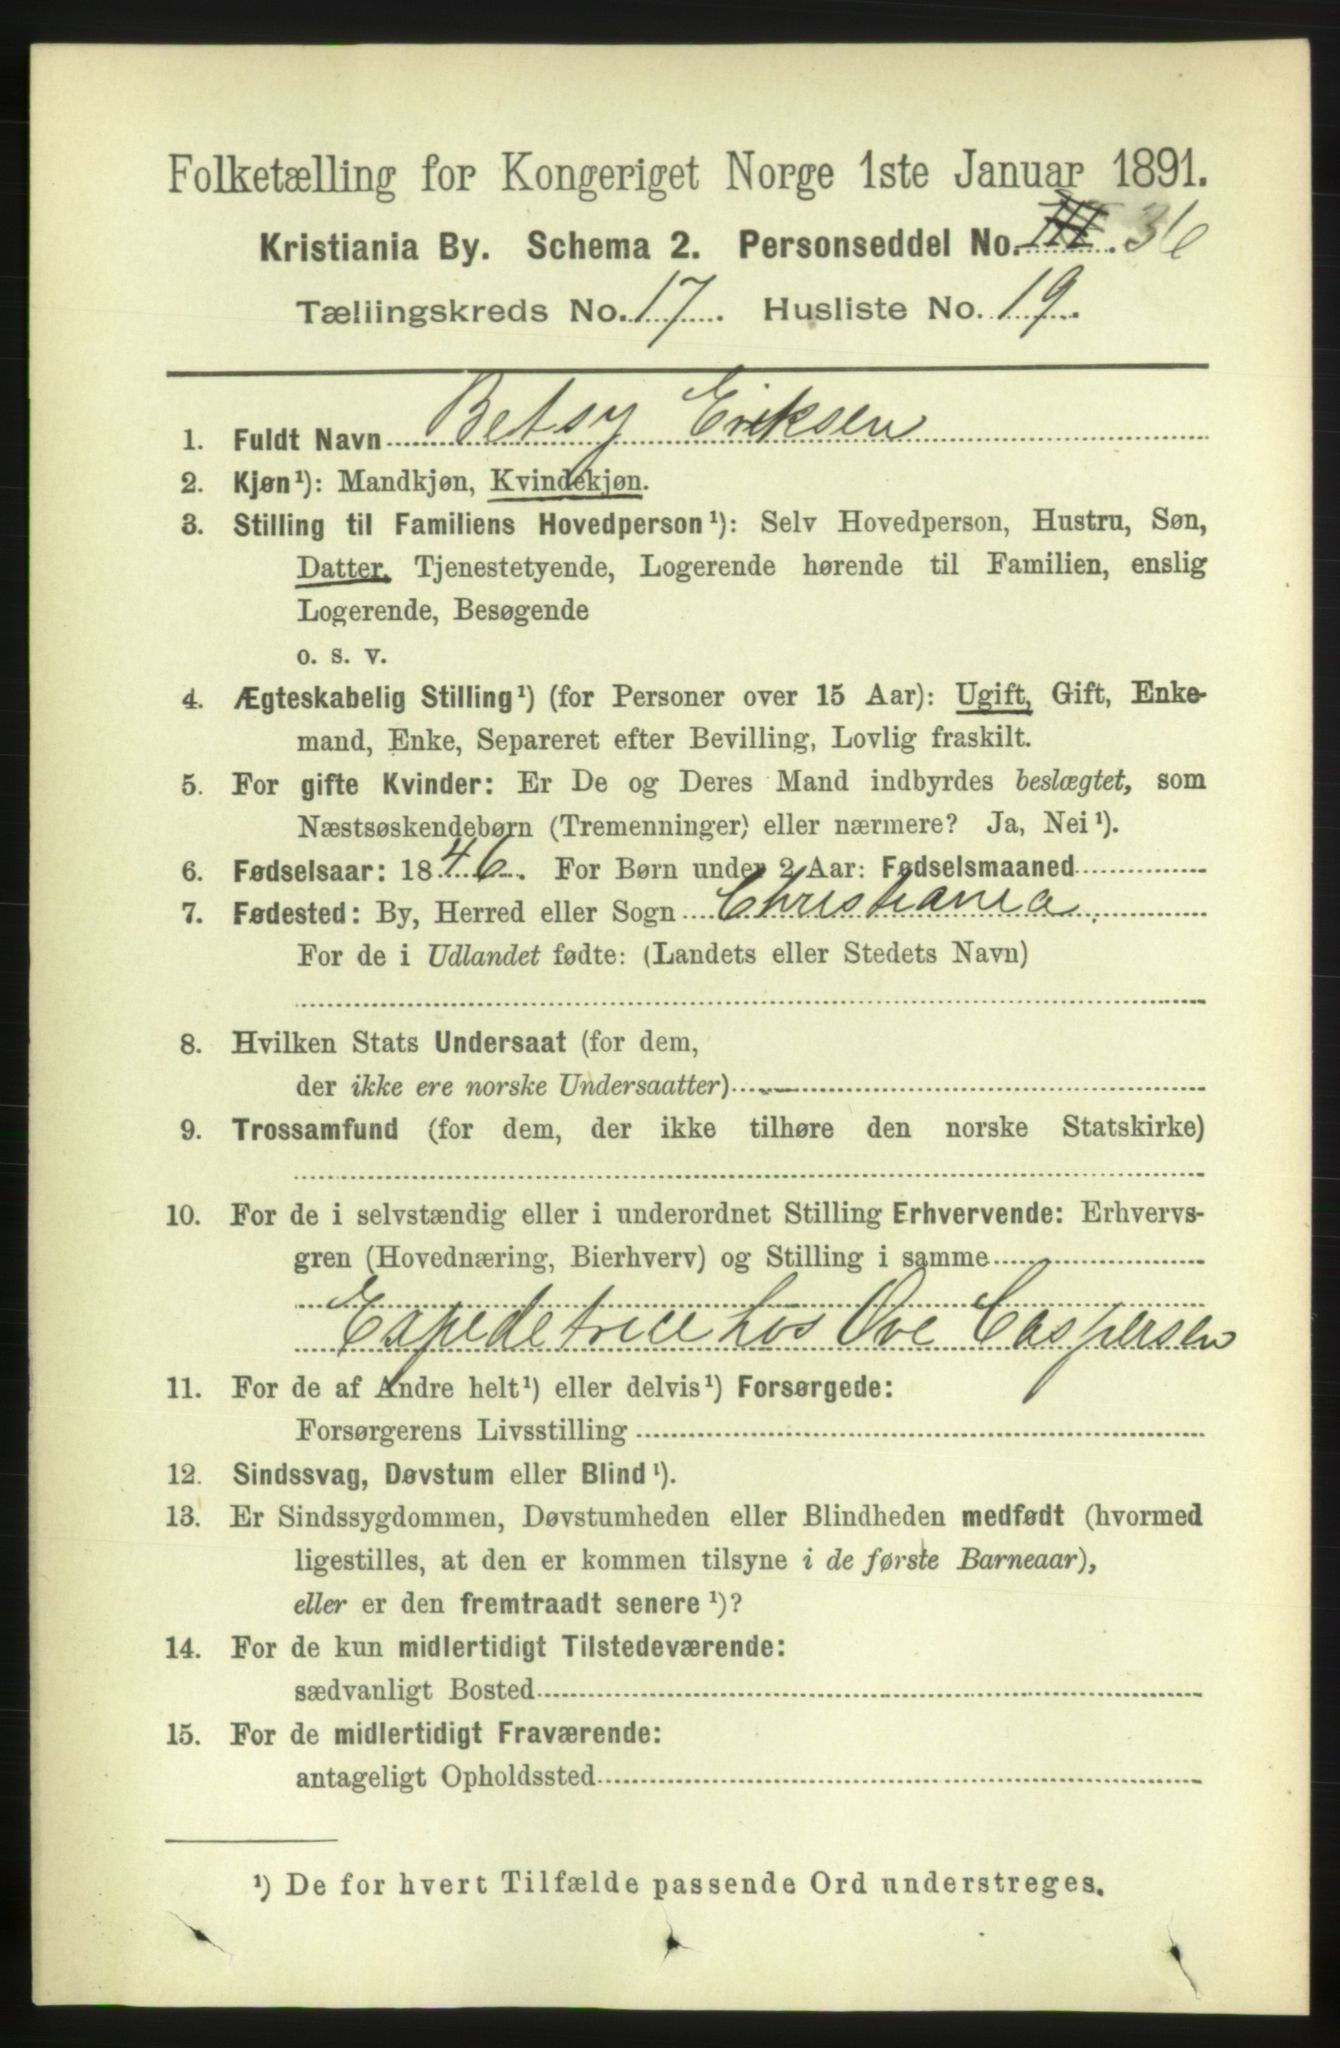 Folketælling for Kongeriget Norge 1ste Januar 1891.
Kristiania By. Schema 2. Personseddel No. 36
Tæliingskreds No. 17. Husliste No. 19.
1. Fuldt Navn Betsy Eriksen
2. Kjøn¹): Mandkjøn, Kvindekjøn.
3. Stilling til Familiens Hovedperson¹): Selv Hovedperson, Hustru, Søn,
Datter, Tjenestetyende, Logerende hørende til Familien, enslig
Logerende, Besøgende
o. s. v.
4. Ægteskabelig Stilling¹) (for Personer over 15 Aar): Ugift, Gift, Enke-
mand, Enke, Separeret efter Bevilling, Lovlig fraskilt.
5. For gifte Kvinder: Er De og Deres Mand indbyrdes beslægtet, som
Næstsøskendebørn (Tremenninger) eller nærmere? Ja, Nei¹).
6. Fødselsaar: 1846. For Børn under 2 Aar: Fødselsmaaned
7. Fødested: By, Herred eller Sogn Christiania.
For de i Udlandet fødte: (Landets eller Stedets Navn)
8. Hvilken Stats Undersaat (for dem,
der ikke ere norske Undersaatter)
9. Trossamfund (for dem, der ikke tilhøre den norske Statskirke)
10. For de i selvstændig eller i underordnet Stilling Erhvervende: Erhvervs-
gren (Hovednæring, Bierhverv) og Stilling i samme
Expedetrice hos Ove Caspersen
11. For de af Andre helt¹) eller delvis¹) Forsørgede:
Forsørgerens Livsstilling
12. Sindssvag, Døvstum eller Blind¹).
13. Er Sindssygdommen, Døvstumheden eller Blindheden medfødt (hvormed
ligestilles, at den er kommen tilsyne i de første Barneaar),
eller er den fremtraadt senere¹)?
14. For de kun midlertidigt Tilstedeværende:
sædvanligt Bosted
15. For de midlertidigt Fraværende:
antageligt Opholdssted
¹) De for hvert Tilfælde passende Ord understreges.